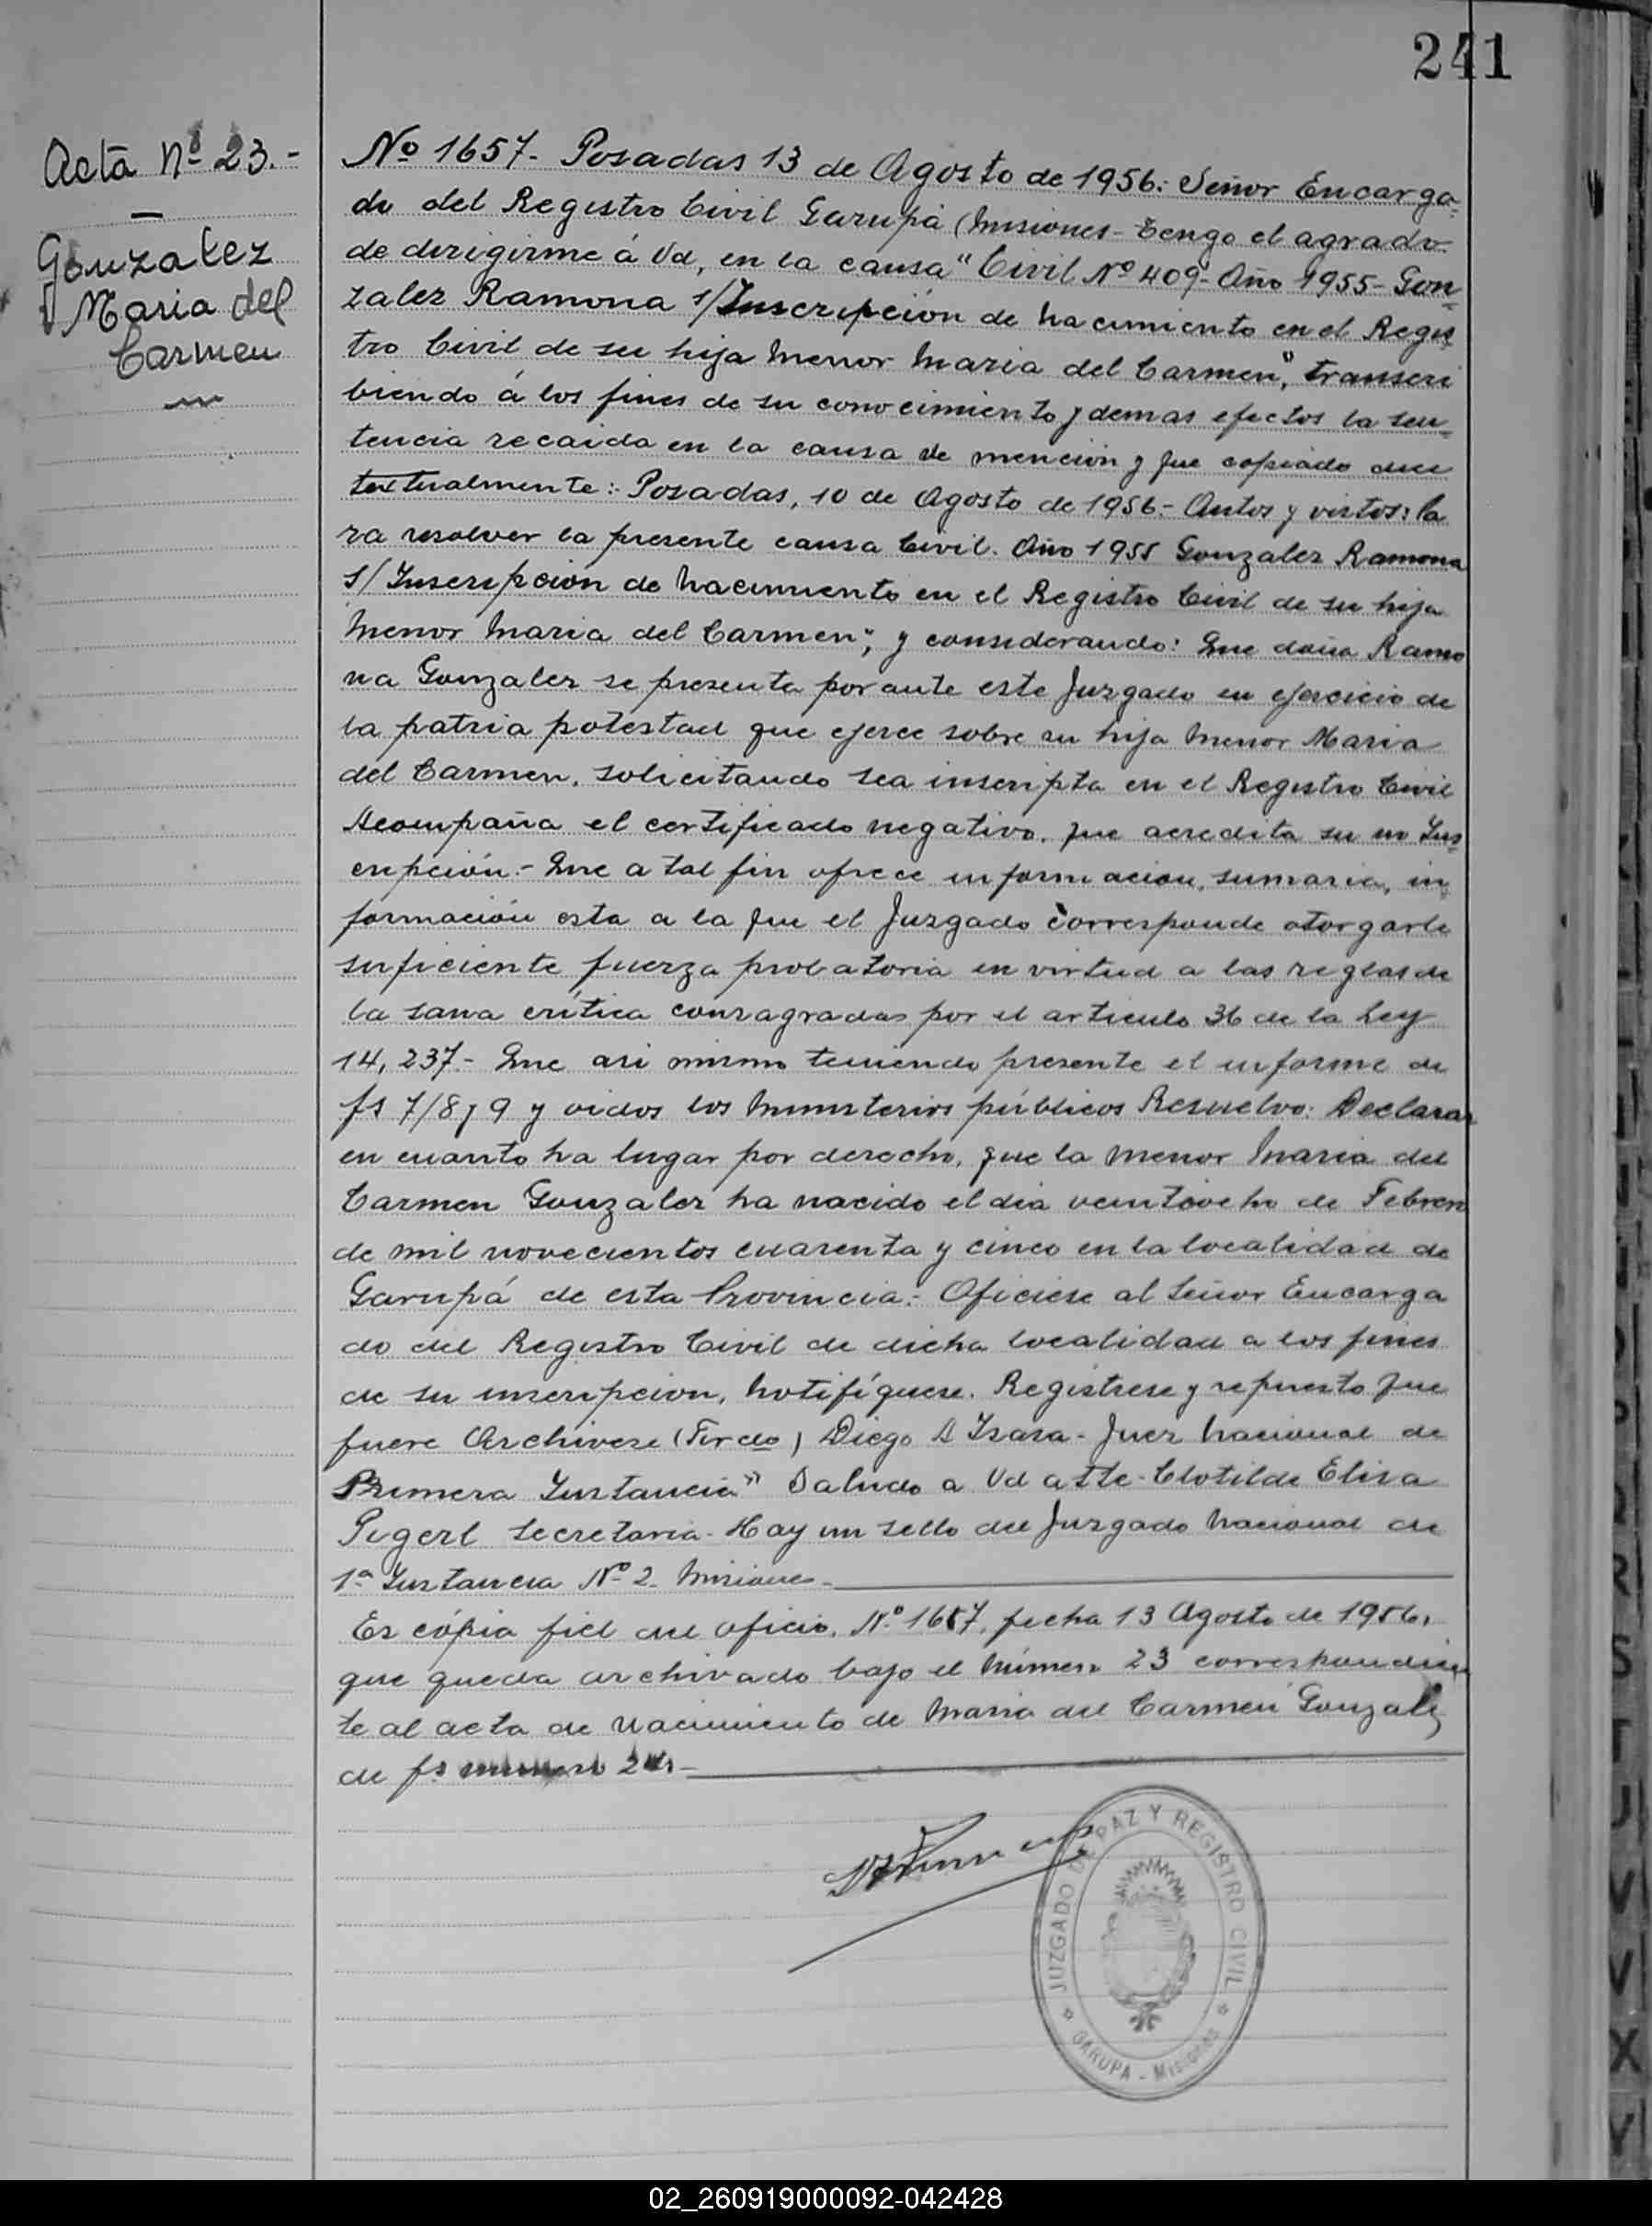 241
Acta Nº 23.-
Gonzalez
Maria del
Carmen
Nº 1657.- Posadas 13 de Agosto de 1956: Señor Encarga-
do del Registro Civil Garupá (Misiones- Tengo el agrado
de dirigirme á Vd, en la causa "Civil Nº 409- Año 1955- Gon-
zalez Ramona s/Inscripción de nacimiento en el Regis
tro Civil de su hija menor Maria del Carmen", transcri
biendo á los fines de su conocimiento y demas efectos la sen-
tencia recaida en la causa de mención y que copiado dice
textualmente: Posadas, 10 de Agosto de 1956.- Autos y vistos: Pa
ra resolver la presente causa Civil. Año 1955 Gonzalez Ramona
s/Inscripción de nacimiento en el Registro Civil de su hija
menor Maria del Carmen", y considerando: Que doña Ramo
na Gonzalez se presenta por ante este Juzgado en ejercicio de
la patria potestad que ejerce sobre su hija menor Maria
del Carmen, solicitando sea inscripta en el Registro Civil
Acompaña el certificado negativo, que acredita su no Ins-
cripción.- Que a tal fin ofrece información, sumaria, in
formación esta a la que el Juzgado corresponde otorgarle
suficiente fuerza probatoria en virtud a las reglas de
la sana crítica consagradas por el articulo 36 de la Ley
14,237.- Que asi mismo teniendo presente el informe de
fs 7/8 y 9 y oidos los ministerios públicos Resuelvo: Declarar
en cuanto ha lugar por derecho, que la menor Maria del
Carmen Gonzalez ha nacido el dia veintiocho de Febrero
de mil novecientos cuarenta y cinco en la localidad de
Garupá de esta Provincia.- Oficiese al Señor Encarga
do del Registro Civil de dicha localidad a los fines
de su inscripcion, notifíquese. Registrese y repuesto que
fuere Archivese (Firdo) Diego D Isasa- Juez Nacional de
Primera Instancia" Saludo a Vd atte- Clotilde Elisa
Pigerl Secretaria- Hay un sello del Juzgado Nacional de
1ª Instancia Nº 2. Misiones-
Es cópia fiel del oficio, Nº 1657, fecha 13 Agosto de 1956,
que queda archivado bajo el número 23 correspondien
te al acta de nacimiento de Maria del Carmen Gonzalez
de fs
JUZGADO DE PAZ Y REGISTRO CIVIL
GARUPA - MISIONES
02_260919000092-042428